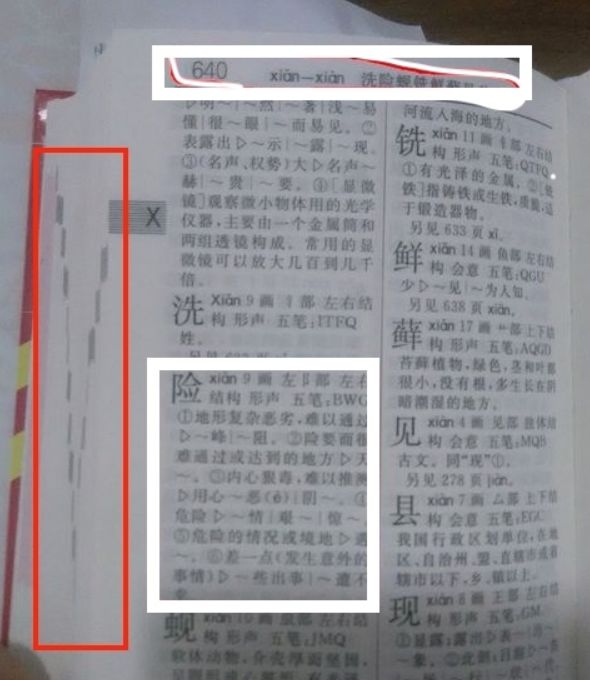 640 xiǎn—xiàn 洗险蚬铣鲜藓见县
X
▷明~|~然|~著|浅~易
懂|很~眼|~而易见。②
表露出▷~示|~露|~现。
③(名声、权势)大▷名声~
赫|~贵|~要。④[显微
镜]观察微小物体用的光学
仪器,主要由一个金属筒和
两组透镜构成。常用的显
微镜可以放大几百到几千
倍。
洗 Xiǎn 9画 氵部 左右结
构 形声 五笔:ITFQ
姓。
险 xiǎn 9画 左阝部 左右
结构 形声 五笔:BWG
①地形复杂恶劣,难以通过
▷~峰|~阻。②险要而很
难通过或达到的地方▷天
~。③内心狠毒,难以推测
▷用心~恶(è)|阴~。④
危险▷~情|艰~|惊~
⑤危险的情况或境地▷遇
~。⑥差一点(发生意外的
事情)▷~些出事|~遭不
蚬 xiǎn 10画 虫部 左右结
构 形声 五笔:JMQ
软体动物,介壳厚而坚固,
河流入海的地方。
铣 xiǎn 11画 钅部 左右结
构 形声 五笔:QTFQ
①有光泽的金属。②[
铁]指铸铁或生铁,质脆,适
于锻造器物。
另见633页xǐ。
鲜 xiǎn 14画 鱼部 左右结
构 会意 五笔:QGU
少▷~见|~为人知。
另见638页xiān。
藓 xiǎn 17画 艹部 上下结
构 形声 五笔:AQGD
苔藓植物,绿色,茎和叶都
很小,没有根,多生长在阴
暗潮湿的地方。
见 xiàn 4画 见部 独体结
构 会意 五笔:MQB
古文。同“现”①。
另见278页jiàn。
县 xiàn 7画 厶部 上下结
构 会意 五笔:EGC
我国行政区划单位,在地
区、自治州、盟、直辖市或省
辖市以下,乡、镇以上。
现 xiàn 8画 王部 左右结
构 形声 五笔:GM
①显露;露出▷表~|出~
~象。②此刻;目前▷~